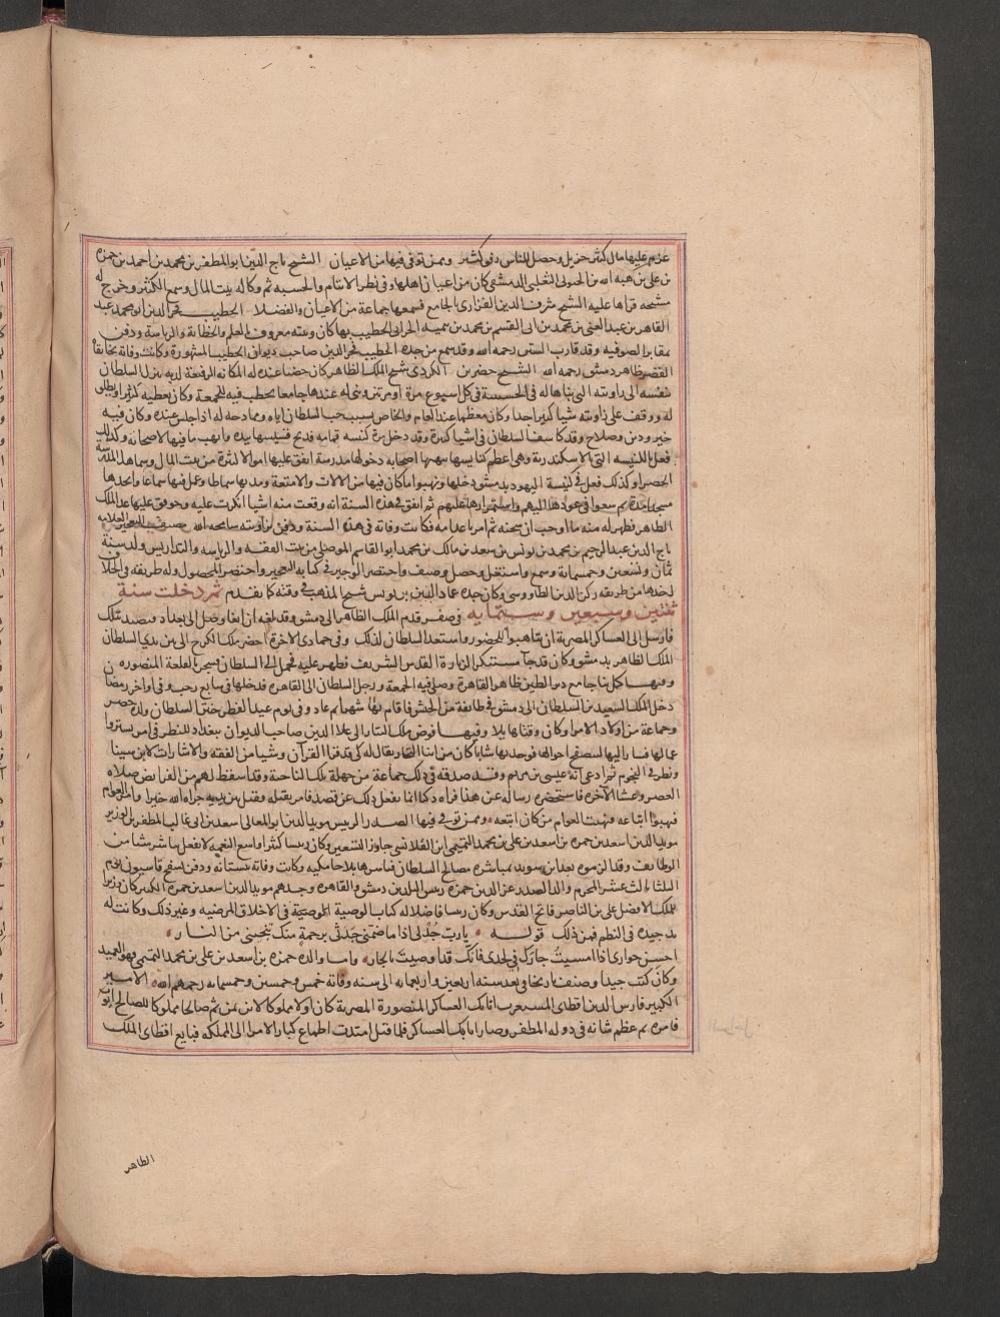 غرم عليها مال كثير جزيل وحصل للناس رفق كثير وممن توفي فيها من الاعيان الشيخ تاج الدين ابو المظفر بن محمد بن احمد بن حمزه
بن علي بن هبة الله بن الحبوبي الثعلبي الدمشقي كان من اعيان اهلها ولي نظر الايتام والحسبه ثم وكالة بيت المال وسمع الكثير وخرج له
مشيخه قراها عليه الشيخ شرف الدين الفزاري بالجامع فسمعها جماعة من الاعيان والفضلا الخطيب فخر الدين ابو محمد عبد
القاهر بن عبد الغني بن محمد بن ابي القسم بن محمد بن تيميه الحراني الخطيب بها كان وبيته معروف بالعلم والخطابة والرياسة ودفن
بمقابر الصوفيه وقد قارب الستين رحمه الله وقد سمع من جده الخطيب فخر الدين صاحب ديوان الخطب المشهورة وكانت وفاته بخانقاه
القصر ظاهر دمشق رحمه الله الشيخ خضر بن الكردي شيخ الملك الظاهر كان حظيا عنده له المكانه الرفيعة لديه ينزل السلطان
بنفسه الى زاويته التي بناها له في الحسينية في كل اسبوع مرة او مرتين وبنى له عندها جامعا يخطب فيه للجمعة وكان يعطيه كثيرا ويطلق
له ووقف على زاويته شيا كثيرا جدا وكان معظما عند العام والخاص بسبب حب السلطان اياه وممازحه له اذا جلس عنده وكان فيه
خير ودين وصلاح وقد كاشف السلطان في اشيا كثيرة وقد دخل مرة كنيسه قمامه فذبح قسيسها بيده وانهب ما فيها لاصحابه وكذلك
فعل بالكنيسه التي بالاسكندرية وهي اعظم كنايسها نهبها اصحابه وحولها مدرسة انفق عليها اموالا كثيرة من بيت المال وسماها المدرسه
الخضرا وكذلك فعل في كنيسة اليهود بدمشق دخلها ونهبوا ما كان فيها من الالات والامتعة ومد بها سماطا وعمل فيها سماعا واتخذها
مسجدا مدة ثم سعوا في عودها اليهم واستمرارها عليهم ثم اتفق في هذه السنة انه وقعت منه اشيا انكرت عليه وحوقق عليها عند الملك
الظاهر فظهر له منه ما اوجب ان سجنه ثم امر باعدامه فكانت وفاته في هذه السنة ودفن بزاويته سامحه الله مصنف التعجيز العلامه
تاج الدين عبد الرحيم بن محمد بن يونس بن سعد بن مالك بن محمد ابو القاسم الموصلي من بيت الفقه والرياسه والتدريس ولد سنة
ثمان وتسعين وخمسمائة وسمع واشتغل وحصل وصنف واختصر الوجيز في كتابه التعجيز واختصر المحصول وله طريقه في الخلا
ف اخذها من طريقه ركن الدين الطاووسي وكان جده عماد الدين بن يونس شيخ المذهب في وقته كما تقدم ثم دخلت سنة
ثنتين وسبعين وستمايه في صفر قدم الملك الظاهر الى دمشق وقد بلغه ان ابغا وصل الى بغداد فتصيد بتلك
فارسل الى العساكر المصرية ان يتاهبوا للحضور واستعد السلطان لذلك وفي جمادى الاخرة احضر ملك الكرج الى بين يدي السلطان
الملك الظاهر بدمشق وكان قد جا مستنكرا لزيارة القدس الشريف فظهر عليه فحمل الى السلطان فسجن بالقلعة المنصوره
وفيها كمل بنا جامع دير الطين ظاهر القاهرة وصلي فيه الجمعة ورحل السلطان الى القاهرة فدخلها في سابع رجب وفي اواخر رمضان
دخل الملك السعيد بن السلطان الى دمشق في طايفة من الجيش فاقام بها شهرا ثم عاد وفي يوم عيد الفطر ختن السلطان ولده خضر
وجماعة من اولاد الامرا وكان وقتا هايلا وفيها فوض ملك التتار الى علا الدين صاحب الديوان ببغداد النظر في امر تستر وا
عمالها فسار اليها ليتصفح احوالها فوجد بها شابا كان من ابنا التجار يقال له كي قد قرا القرآن وشيا من الفقه والاشارات لابن سينا
ونظر في النجوم ثم ادعى انه عيسى بن مريم وقد صدقه في ذلك جماعة من جهلة تلك الناحية وقد اسقط لهم من الفرايض صلاة
العصر وعشا الاخره فاستحضره وساله عن هذا فراه ذكيا انما يفعل ذلك عن قصد فامر بقتله وقتل بين يديه جزاه الله خيرا وامر العوام
فنهبوا اتباعه ونهبت العوام من كان اتبعه وممن توفي فيها الصدر الرييس مويد الدين ابو المعالي اسعد بن ابي غالب المظفر بن الوزير
مويد الدين اسعد بن حمزه بن اسعد بن علي بن محمد التميمي ابن القلانسي جاوز التسعين وكان رييسا كثيرا واسع النعمه لا يفعل مباشر شيا من
الوظايف وقد الزموه بعد ابن سويد بمباشرة مصالح السلطان فباشرها بلا جامكيه وكانت وفاته ببستانه ودفن بسفح قاسيون يوم
الثلثا ثالث عشر المحرم والد الصدر عز الدين حمزه رييس البلدين دمشق والقاهره وجدهم مويد الدين اسعد بن حمزه الكبير كان وزير
للملك الافضل علي بن الناصر فاتح القدس وكان رييسا فاضلا له كتاب الوصية المرضيه في الاخلاق المرضيه وغير ذلك وكانت له
يد جيده في النظم فمن ذلك قوله يا رب جد لي اذا ما ضمني جدثي برحمة منك تنجيني من النار
احسن جواري اذا امسيت جارك في لحدي فانك قد اوصيت بالجار واما والده حمزه بن اسعد بن علي بن محمد التميمي فهو العميد
وكان كتب جيدا وصنف تاريخا في بعد سنة اربعين واربعمايه الى سنه وفاته خمس وخمسين وخمسمايه رحمهم الله الامير
الكبير فارس الدين اقطاي المستعرب اتابك العساكر المنصورة المصرية كان اولا مملوكا لابن يمن ثم صار مملوكا للصالح ايوب
فامره ثم عظم شانه في دولة المظفر وصار اتابك العساكر فلما قتل امتدت اطماع كبار الامرا الى المملكه فبايع اقطاي الملك
الظاهر